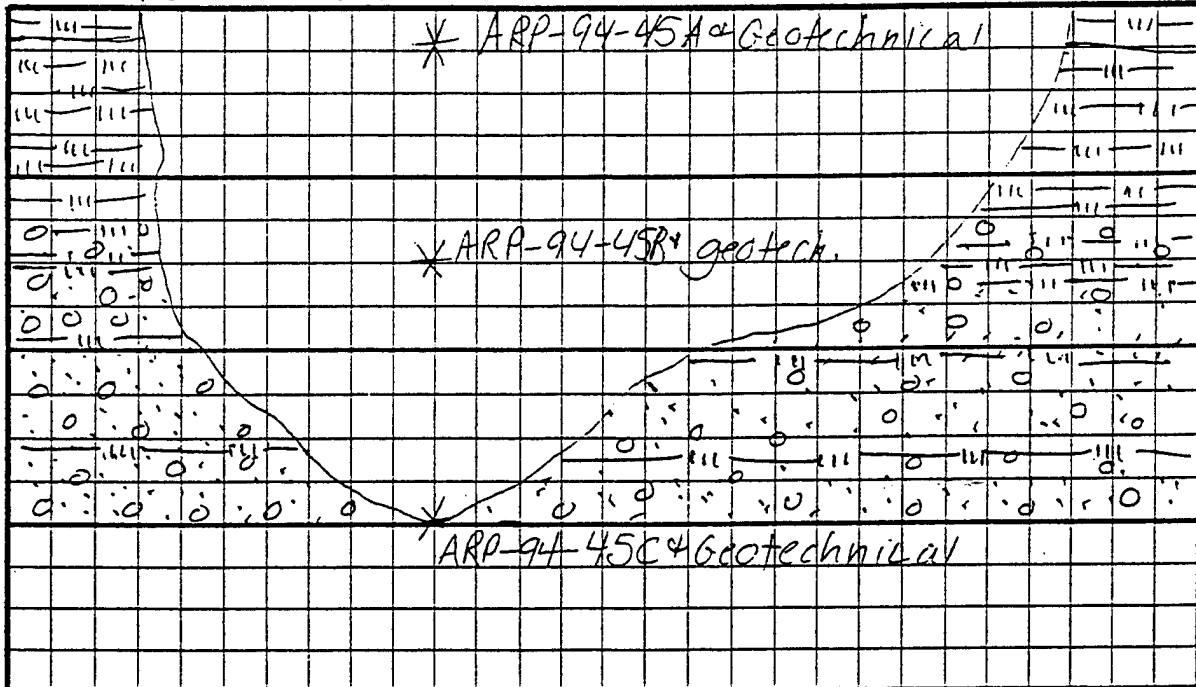 ARP-94-45A & Geotechnical
ARP-94-45B & geotech.
ARP-94-45C & Geotechnical